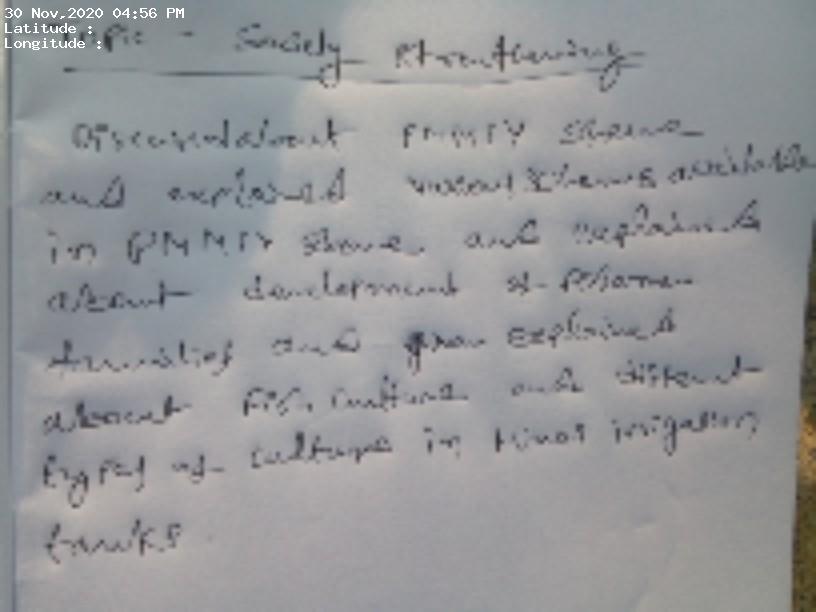 30 Nov,2020 04:56 PM
Latitude :
Longitude :
Topic - Society Strenthening
Discussed about PMMSY scheme
and explained various schemes available
in PMMSY scheme and explained
about development of fisherman
families and explained
about Fish culture and different
types of culture in Minor irrigation
tanks